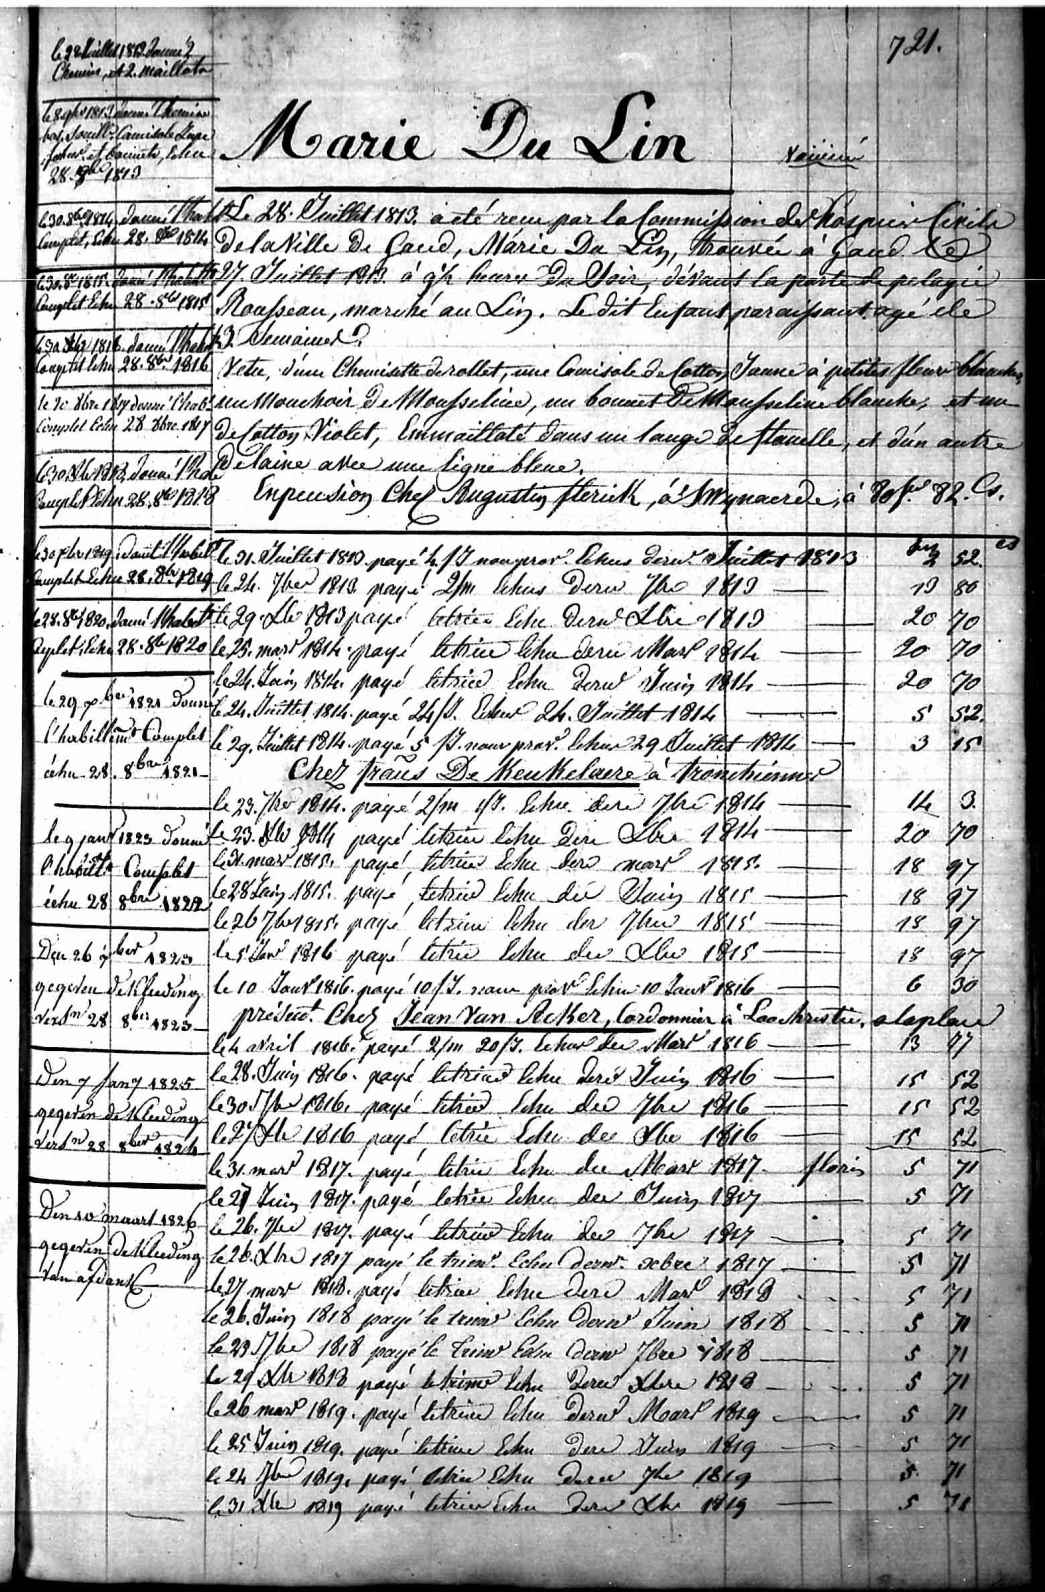 721.
le 28 Juillet 1813 donné 2
Chemise, et 2. maillots
le 8 9bre 1813 donné 1 Chemise
bas, Camisole Jupe
et bonnets, Echu
28. 8bre 1813
le 30. 8bre 1814, donné l'habt
Complet, Echu 28. 8bre 1814
le 30. 8re 1815. donné l'habilt
Complet Echu 28. 8bre 1815
le 30 1816. donné l'habt
Complet Echu 28. 8bre 1816
le 30 8bre 1817 donné l'habt
Complet Echu 28. 8bre. 1817
le 30. 1818, donné l'hab
Complet Echu 28. 8bre 1818
le 30 1819. donné l'habilt
Complet Echu 28. 8bre 1819
le 28. 8bre 1820. donné l'habilt
Complet, Echu 28. 8bre 1820
le 29 xbre 1821 donné
l'habillemt Complet
échu 28. 8bre 1821
le 9 janr 1823 donné
l'habillt Complet
échu 28 8bre 1822
Den 26 9ber 1823
gegeven de Kleeding
versn 28 8ber 1823
Den 7 Jany 1825
gegeven de Kleeding
versn 28 8ber 1824
Den 10 maart 1826
gegeven de Kleeding
van afdank
Marie Du Lin
Le 28. Juillet 1813. a été recue par la Commission des hospices Civils
de la Ville de Gand, Marie Du Lin, trouvée à Gand le
27 Juillet 1813. à 9½ heures Du Soir, devant la porte de pelagie
Rousseau, marché au Lin. Le dit Enfant paraissant agé de
3 Semaines.
Vetu, d'une Chemisette de rollet, une Camisole de Cotton, Jaune à petites fleurs blanches,
un Mouchoir de Mousseline, un bonnet de Mousseline blanche, et un
de Cotton Violet, Emmailloté dans un lange de flanelle, et d'un autre
de laine avec une ligne bleue.
En pension Chez Augustin Sterick, à Swynaerde, à 80 fr 82. Cs.
le 31. Juillet 1813 payé 4/J. nouv prov. Echus dernr Juillet 1813 2 52.
le 24. 7bre 1813 payé 2/m Echus dernr 7bre 1813 13 80
le 29. Xbre 1813 payé letrim Echu dernr Xbre 1813 20 70
le 25. mars 1814. payé letrim Echu dernr Mars 1814 20 70
le 24. Juin 1814. payé letrim Echu dernr Juin 1814 20 70
le 24. Juillet 1814. payé 24/J. Echus 24. Juillet 1814 5 52.
le 29. Juillet 1814. payé 5/J. nouv prov. Echus 29 Juillet 1814 3 15
Chez frans De Keukelaere à tronchiennes
le 23. 7bre 1814. payé 2/m 1/J. Echu dern 7bre 1814 14 3.
le 23. Xbre 1814 payé letrim Echu dern Xbre 1814 20 70
le 31. mars 1815. payé, letrim Echu dern mars 1815. 18 97
le 28 Juin 1815. payé, letrim Echu der Juin 1815 18 97
le 26 7bre 1815. payé letrim Echu der 7bre 1815 18 97
le 5 Janr 1816 payé letrim Echu der Xbre 1815 18 97
le 10 Janvr 1816. payé 10/J. nouv provr Echu 10 Janvr 1816 6 30
présent. Chez Jean Van Acker, Cordonnier à Loochristie. a la place
le 4 avril 1816. payé 2/m 20/J. Echus der Mars 1816 13 97
le 28. Juin 1816. payé letrim Echu dern Juin 1816 15 52
le 30 7bre 1816. payé letrim Echu der 7bre 1816 15 52
le 27 Xbre 1816 payé letrim Echu der Xbre 1816 15 52
le 31. mars 1817. payé letrim Echu der Mars 1817 florin 5 71
le 27 Juin 1817. payé letrim Echu der Juin 1817 5 71
le 26. 7bre 1817. payé letrim Echu der 7bre 1817 5 71
le 26. Xbre 1817 payé le trimr. Echu dernr. xbre 1817 5 71
le 27 mars 1818. payé letrim Echu dern Mars 1818 5 71
le 26. Juin 1818 payé le trimr Echu dernr Juin 1818 5 71
le 29 7bre 1818 payé le Trimr Echu dernr 7bre 1818 5 71
le 29 Xbre 1818 payé letrimr Echu dernr Xbre 1818 5 71
le 26 mars 1819. payé letrim Echu dernr Mars 1819 5 71
le 25 Juin 1819. payé letrim Echu dern Juin 1819 5 71
le 24 7bre 1819. payé letrim Echu dern 7bre 1819 5 71
le 31 Xbre 1819 payé letrim Echu dern Xbre 1819 5 71